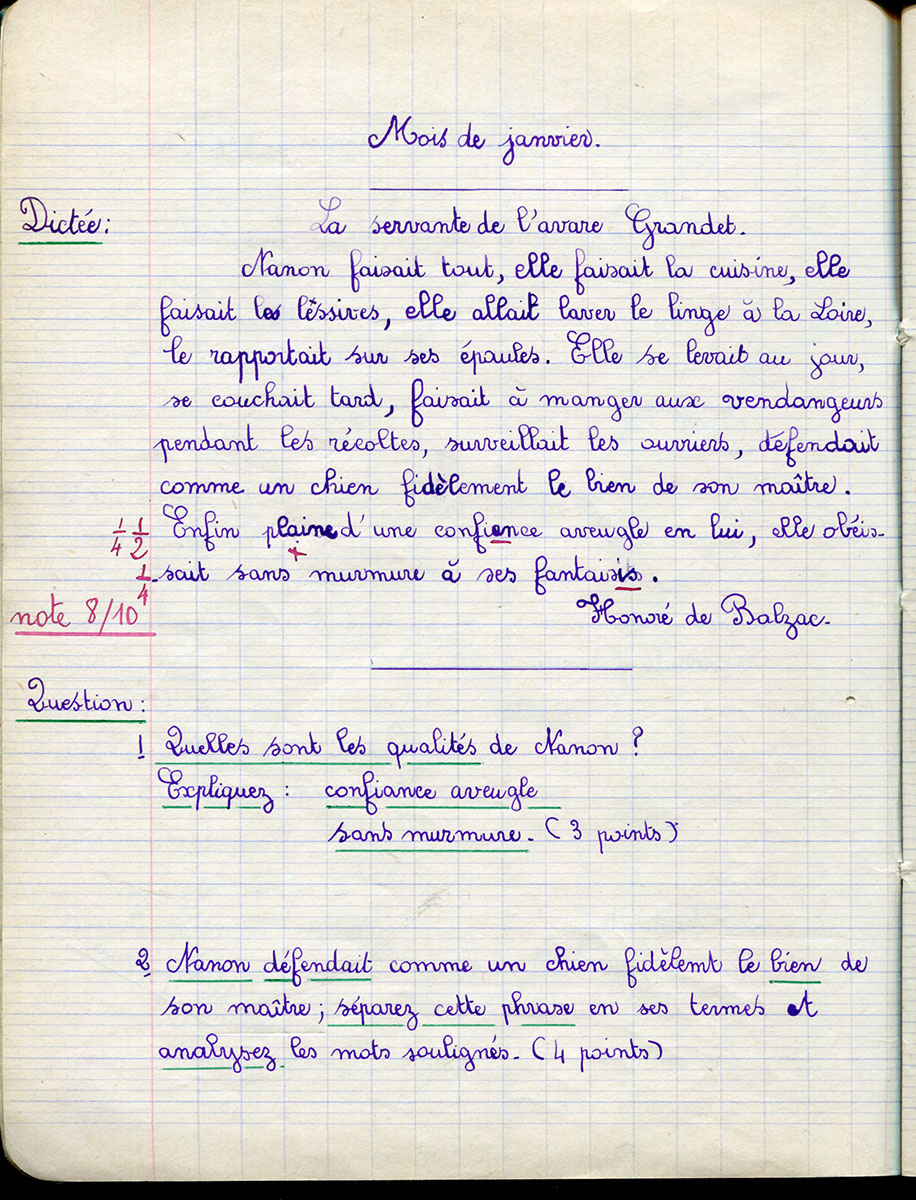 Mois de janvier.
Dictée : La servante de l'avare Grandet.
Nanon faisait tout, elle faisait la cuisine, elle
faisait les léssives, elle allait laver le linge à la Loire,
le rapportait sur ses épaules. Elle se levait au jour,
se couchait tard, faisait à manger aux vendangeurs
pendant les récoltes, surveillait les ouvriers, défendait
comme un chien fidèlement le bien de son maître.
1/4 1/2 Enfin plaine d'une confience aveugle en lui, elle obéis-
+
1/4 sait sans murmure à ses fantaisis.
note 8/10 Honoré de Balzac.
Question :
1 Quelles sont les qualités de Nanon ?
Expliquez : confiance aveugle
sans murmure. (3 points)
2 Nanon défendait comme un chien fidèlemt le bien de
son maître ; séparez cette phrase en ses termes et
analysez les mots soulignés. (4 points)